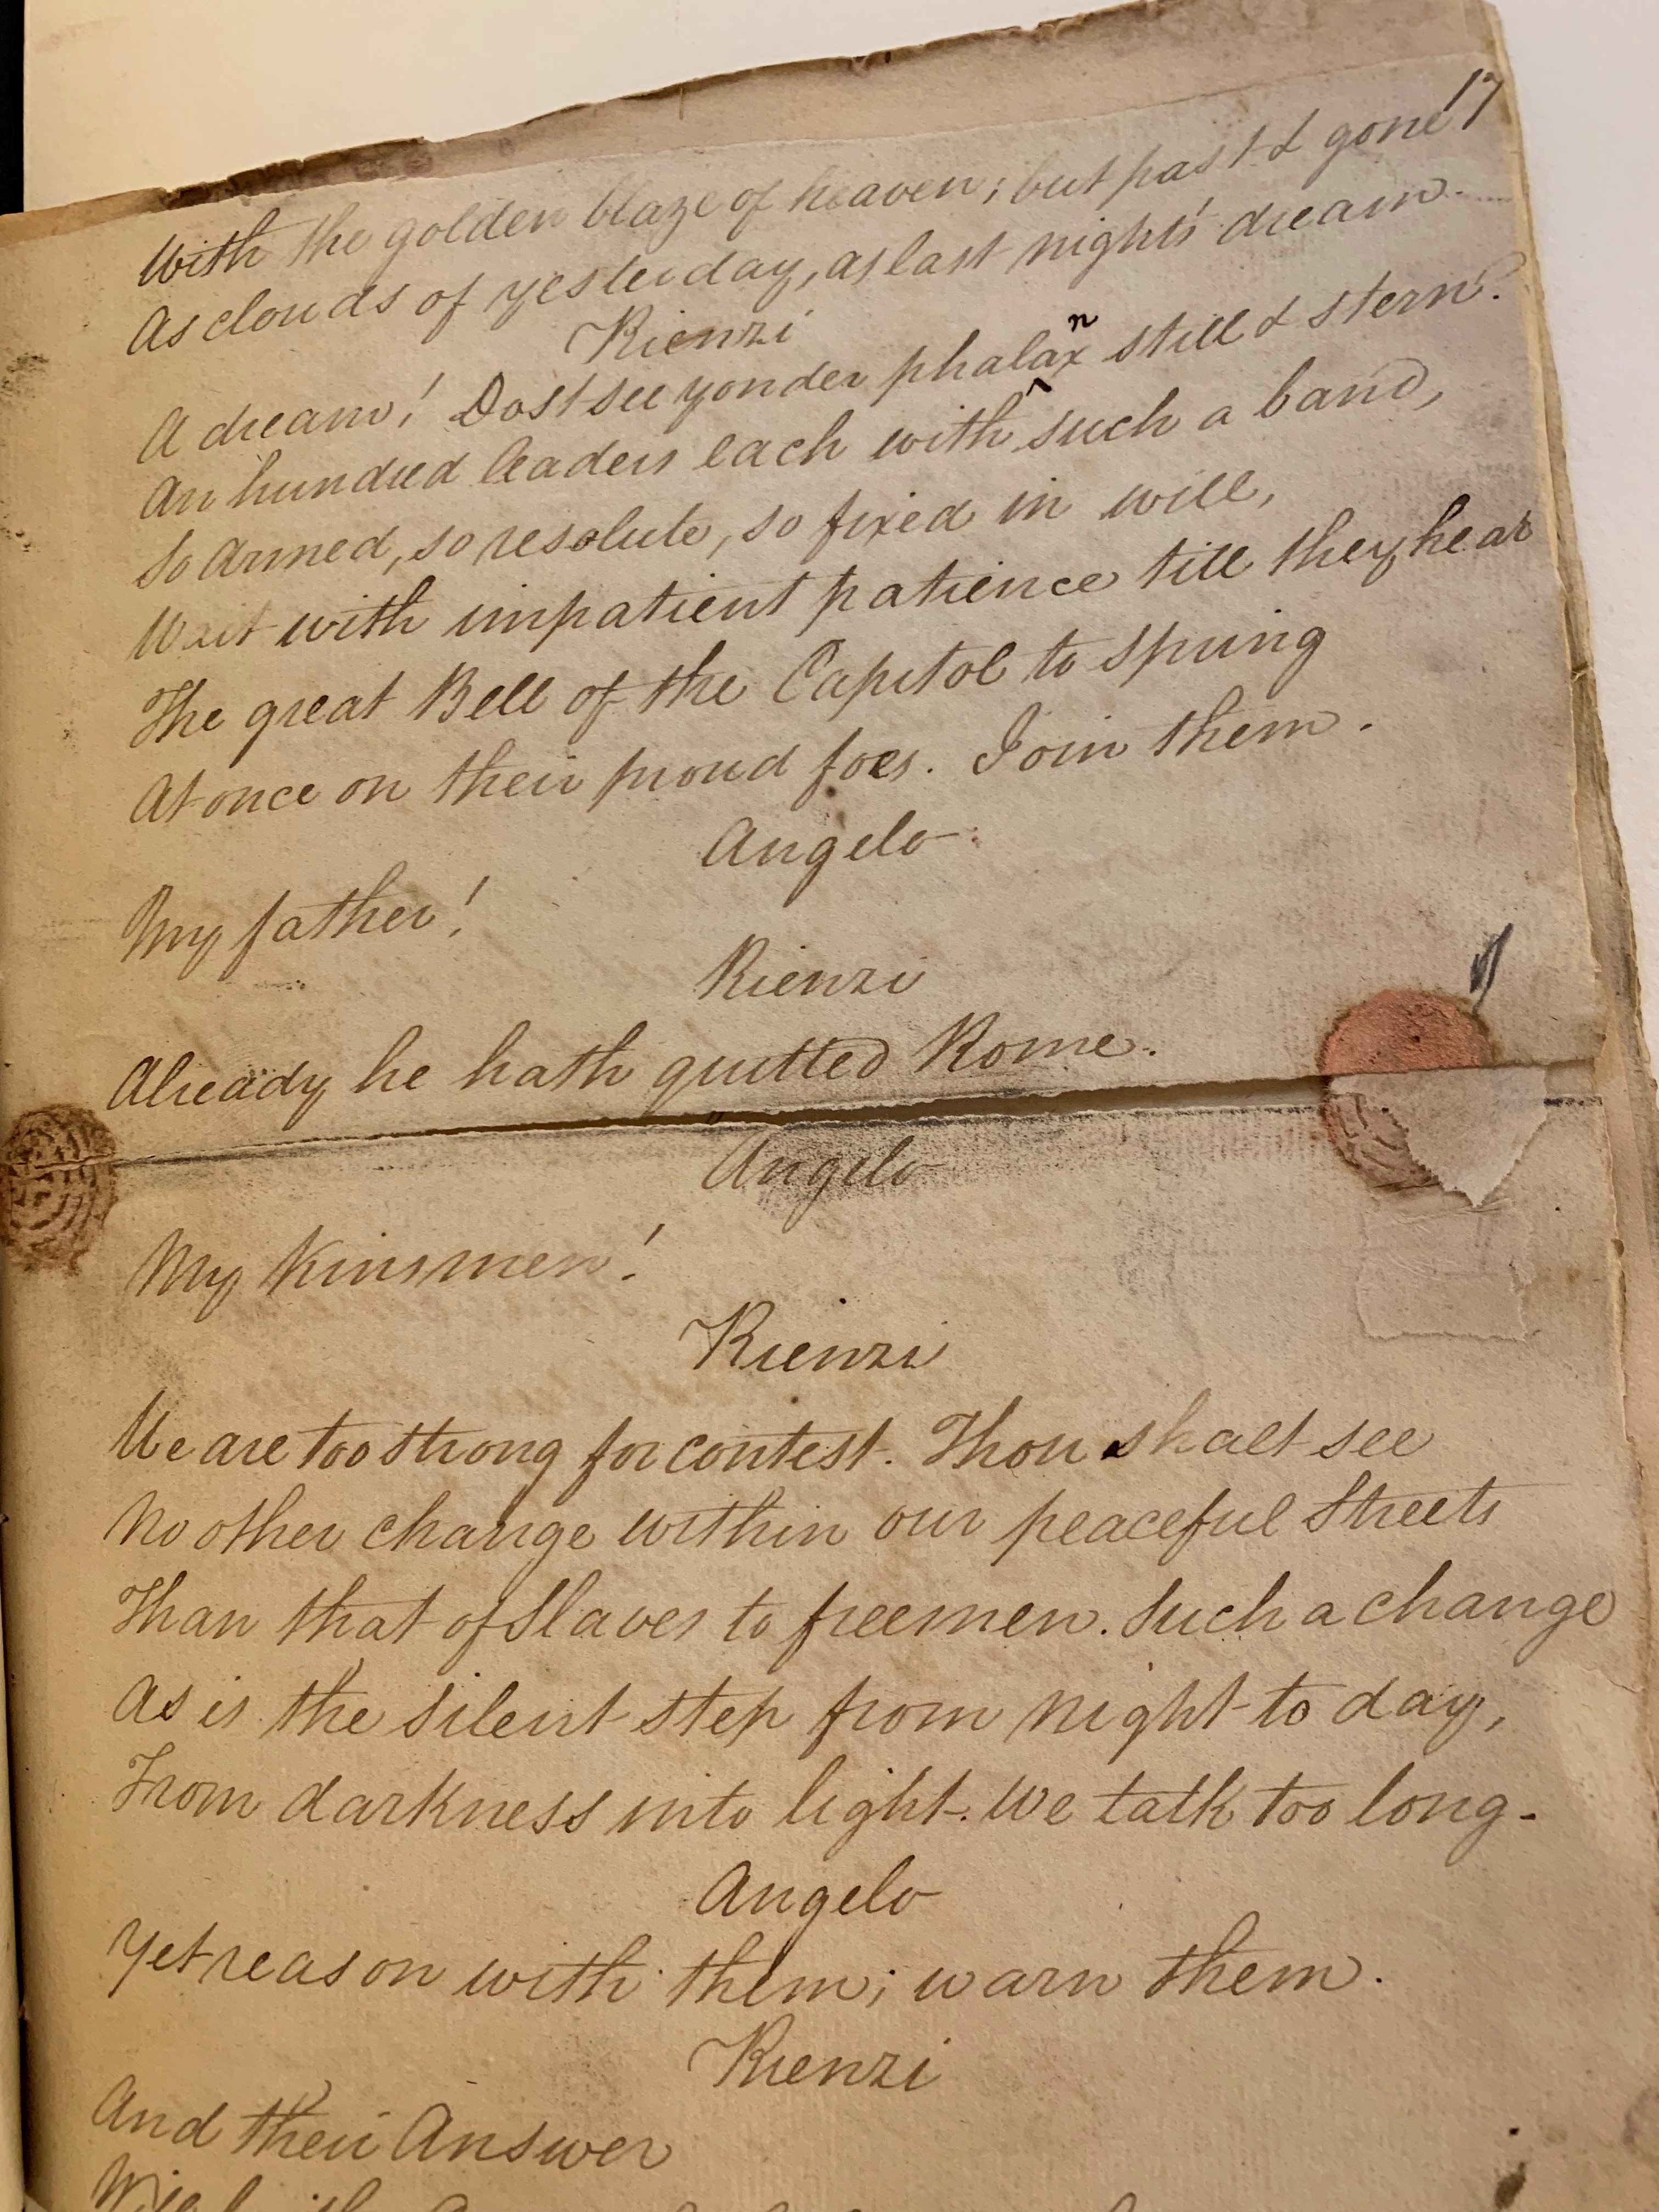 17
With the golden blaze of heaven; but past & gone
As clouds of yesterday, as last night's dream.
Rienzi
A dream! Dost see yonder phalanx still & stern?
An hundred leaders each with such a band,
So armed, so resolute, so fixed in will,
Wait with impatient patience till they hear
The great Bell of the Capitol to spring
At once on their proud foes. Join them.
Angelo
My father!
Rienzi
Already he hath quitted Rome.
Angelo
My Kinsmen!
Rienzi
We are too strong for contest. Thou shalt see
No other change within our peaceful Streets
Than that of Slaves to freemen. Such a change
As is the silent step from night to day,
From darkness into light. We talk too long.
Angelo
Yet reason with them; warn them.
Rienzi
And their Answer